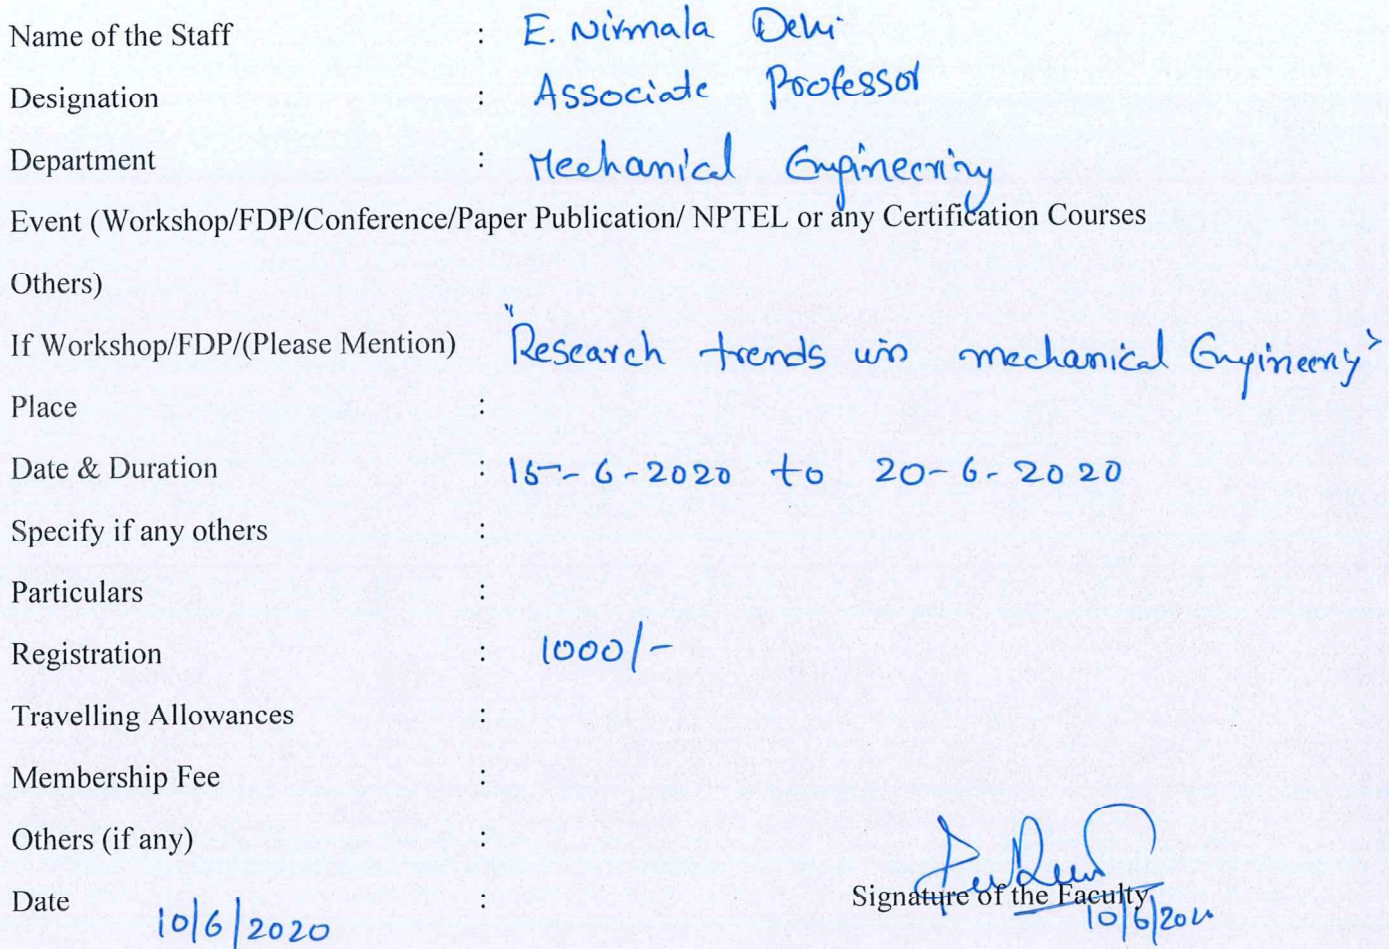 Name of the Staff : E. Nirmala Devi
Designation : Associate Professor
Department : Mechanical Engineering
Event (Workshop/FDP/Conference/Paper Publication/ NPTEL or any Certification Courses
Others)
If Workshop/FDP/(Please Mention) "Research trends in mechanical Engineering"
Place :
Date & Duration : 15-6-2020 to 20-6-2020
Specify if any others :
Particulars :
Registration : 1000/-
Travelling Allowances :
Membership Fee :
Others (if any) :
Date 10/6/2020 : Signature of the Faculty
10/6/2020